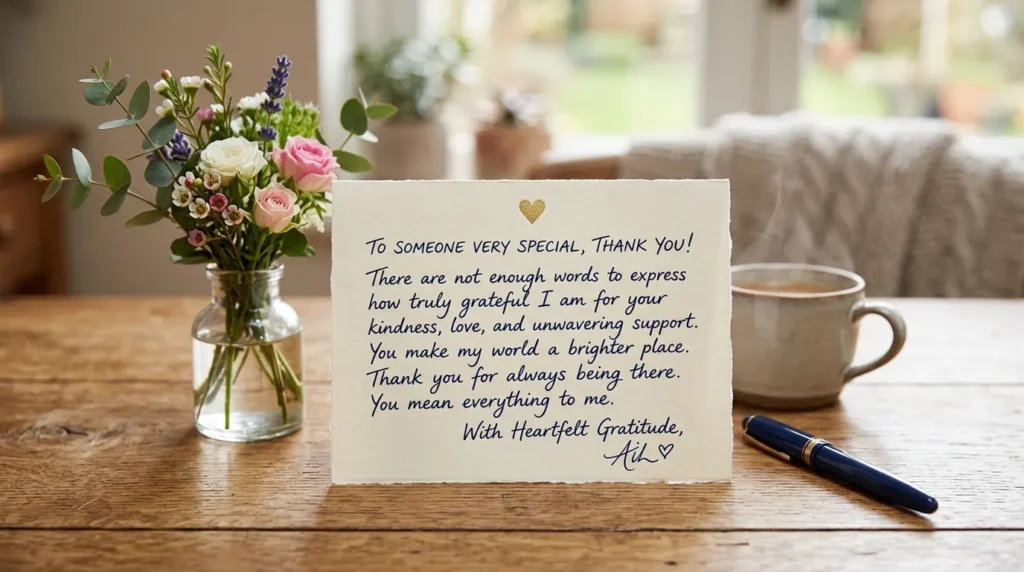 TO SOMEONE VERY SPECIAL, THANK YOU!
There are not enough words to express
how truly grateful I am for your
kindness, love, and unwavering support.
You make my world a brighter place.
Thank you for always being there.
You mean everything to me.
With Heartfelt Gratitude,